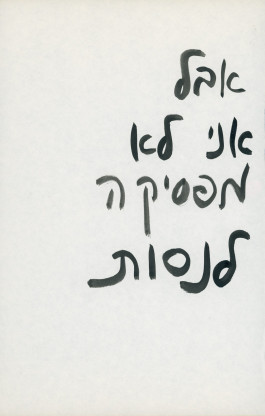 אבל
אני לא
מפסיקה
לנסות